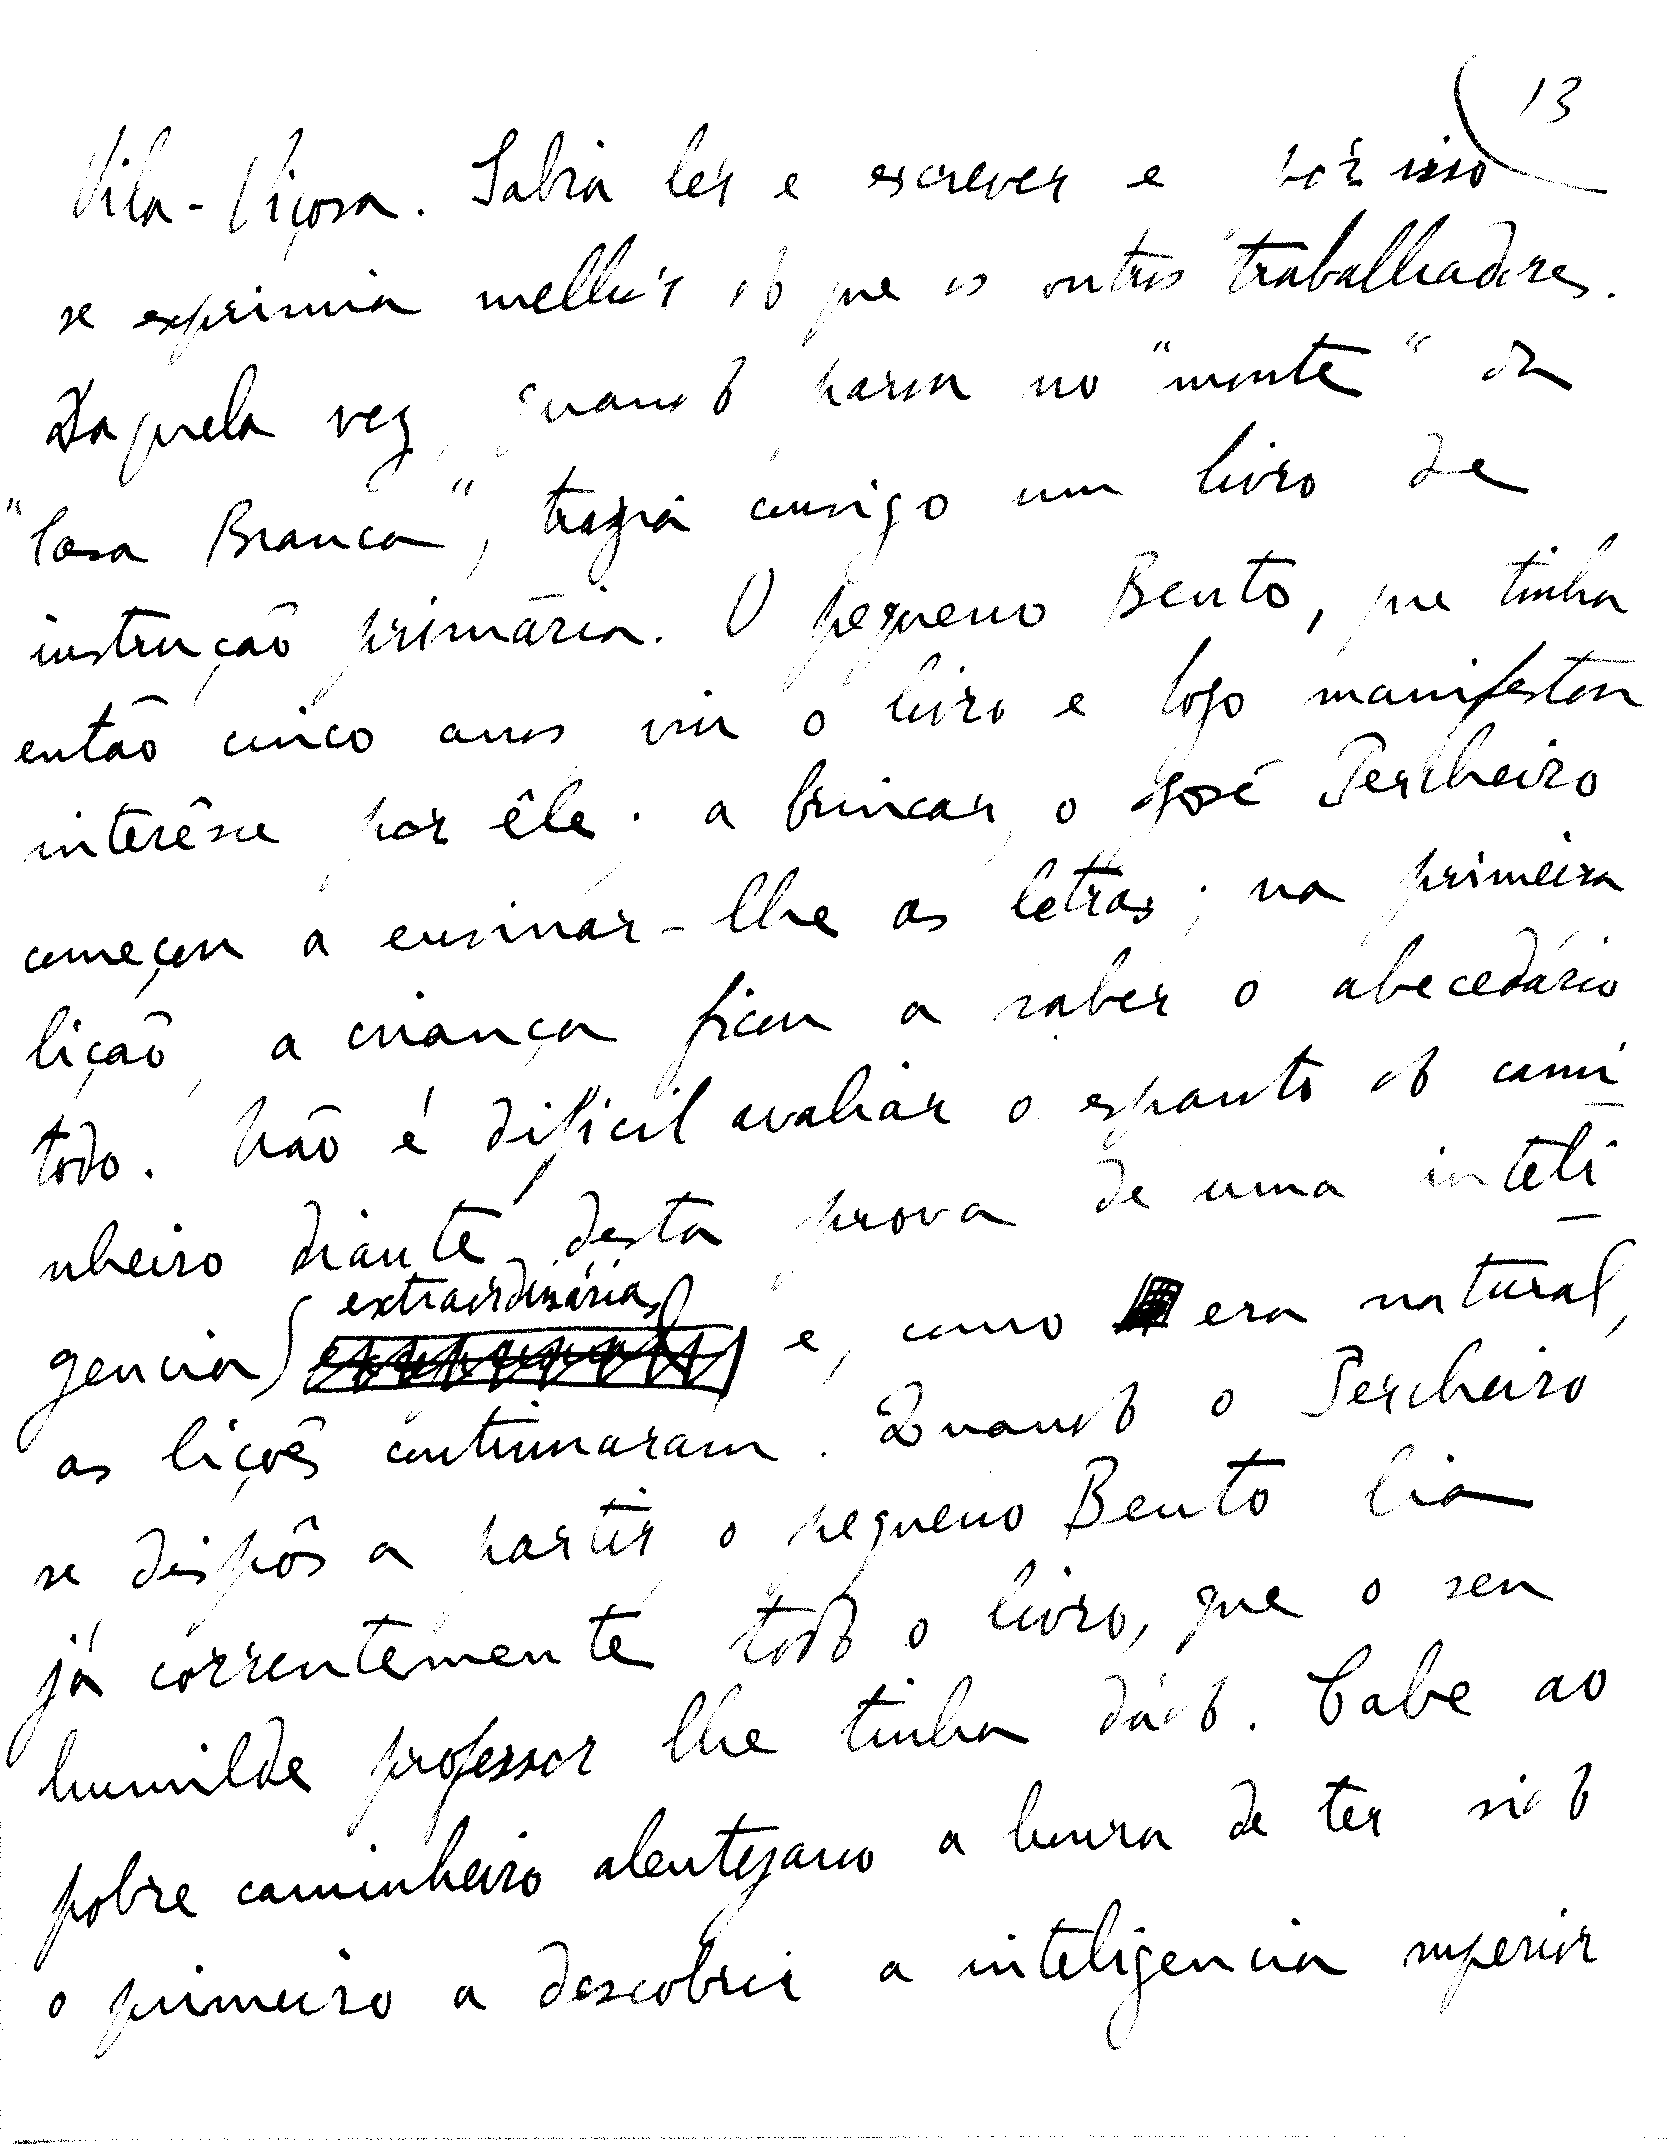 13
Vila-Viçosa. Sabia ler e escrever e por isso
se exprimia melhor do que os outros trabalhadores.
Daquela vez, quando parou no "monte" da
"Casa Branca", trazia consigo um livro de
instrução primária. O pequeno Bento, que tinha
então cinco anos viu o livro e logo manifestou
interêsse por êle. a brincar, o José Percheiro
começou a ensinar-lhe as letras; na primeira
lição, a criança ficou a saber o abecedário
todo. Não é difícil avaliar o espanto do cami
nheiro diante desta prova de uma inteli
extraordinária
gencia e, como era natural,
as lições continuaram. Quando o Percheiro
se dispôs a partir o pequeno Bento lia
já correntemente todo o livro, que o seu
humilde professor lhe tinha dádo. Cabe ao
pobre caminheiro alentejano a honra de ter sido
o primeiro a descobrir a inteligencia superior